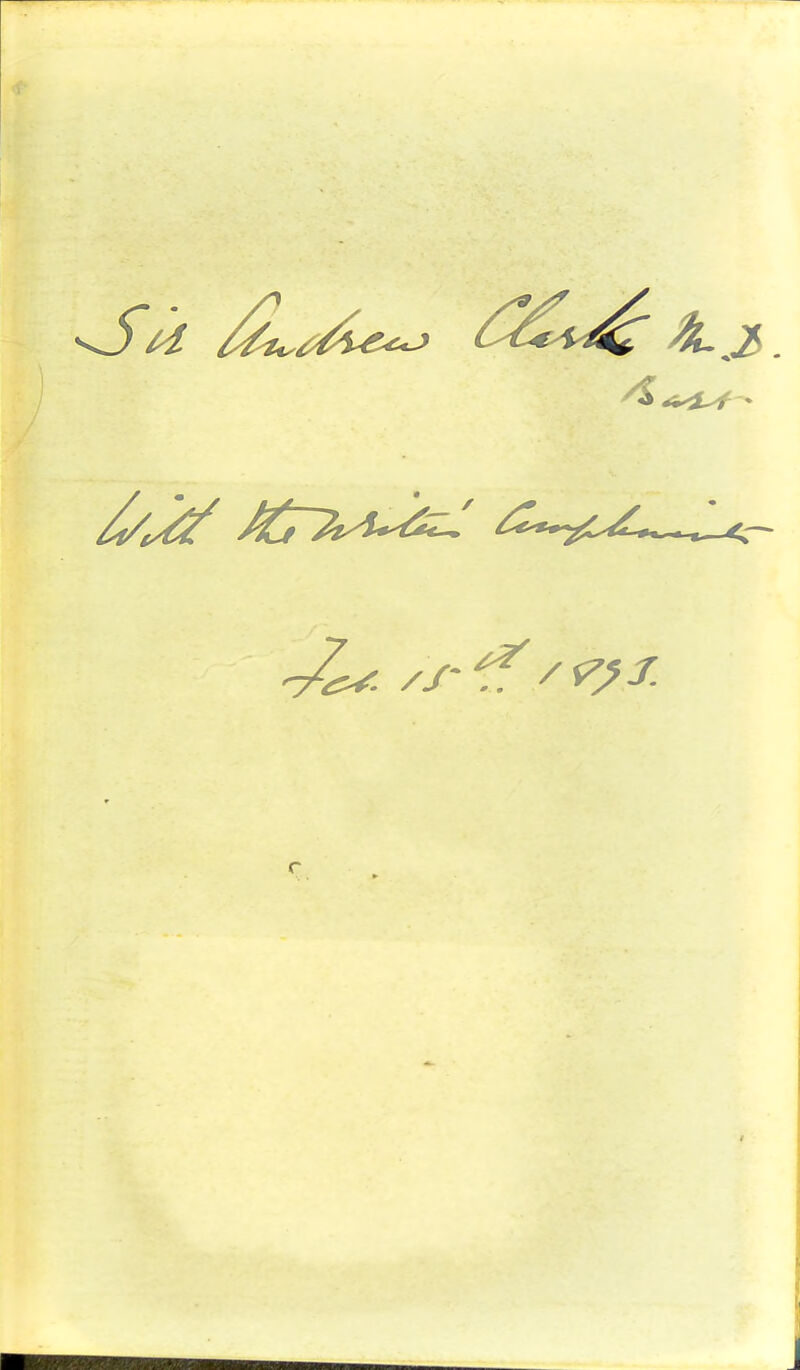 Sir Andrew Clark M.D.
Bart.
With the Writer's Compliments
Feb. 15th 1893.